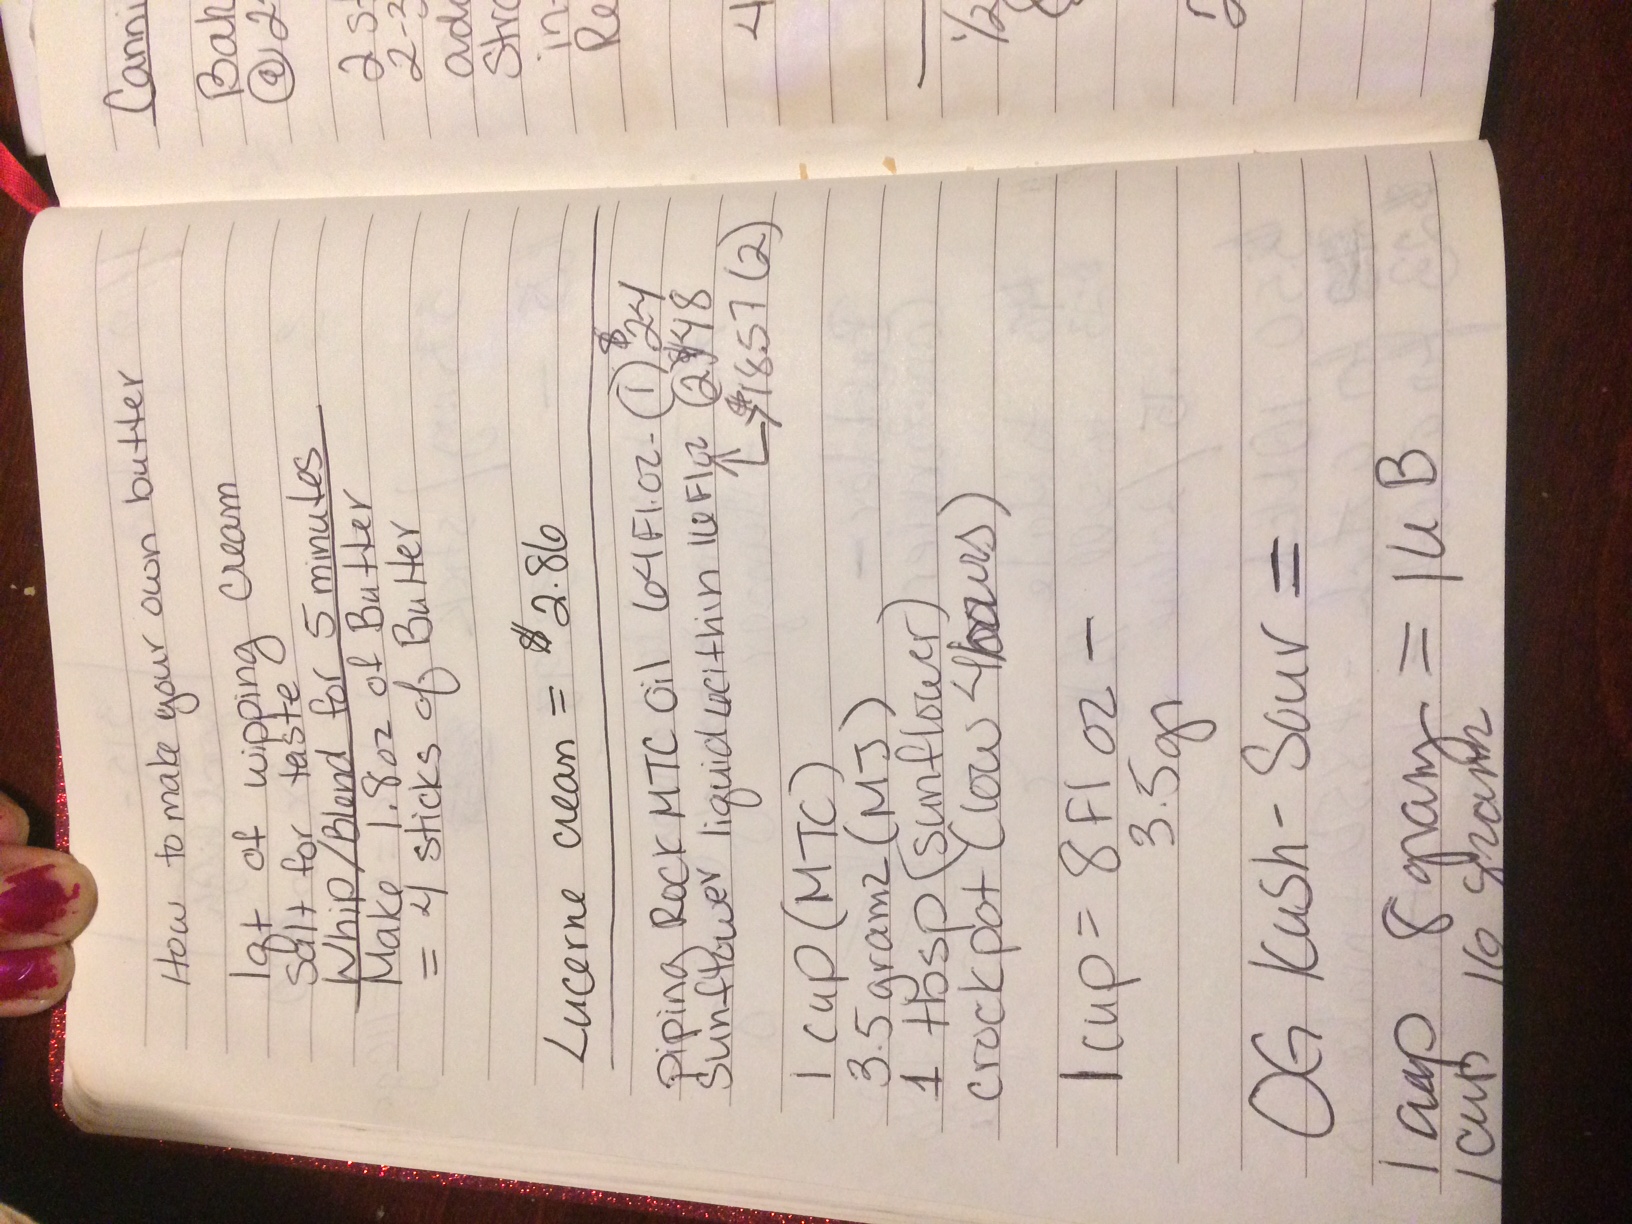 How to make your own butter
1qt of wipping cream
Salt for taste
Whip/Blend for 5 minutes
Make 1.8oz of Butter
= 4 sticks of Butter
Lucerne crean = $2.86
piping Rock MTC Oil 64 Fl.oz - (1) $24
Sunflower liquid lecithin 16 Fl oz (2) $48
$18.57 (2)
1 cup (MTC)
3.5 gramz (MJ)
1 tbsp (sunflower)
crockpot (low 4 hours)
1 cup = 8 Fl oz -
3.5gr
OG Kush - Sour =
1 cup 8 gramz = 16 B
1 cup 16 gramz
Canni
Bak
@ 2
2 S
2-3
add
Stra
in
Re
4
1/2
2